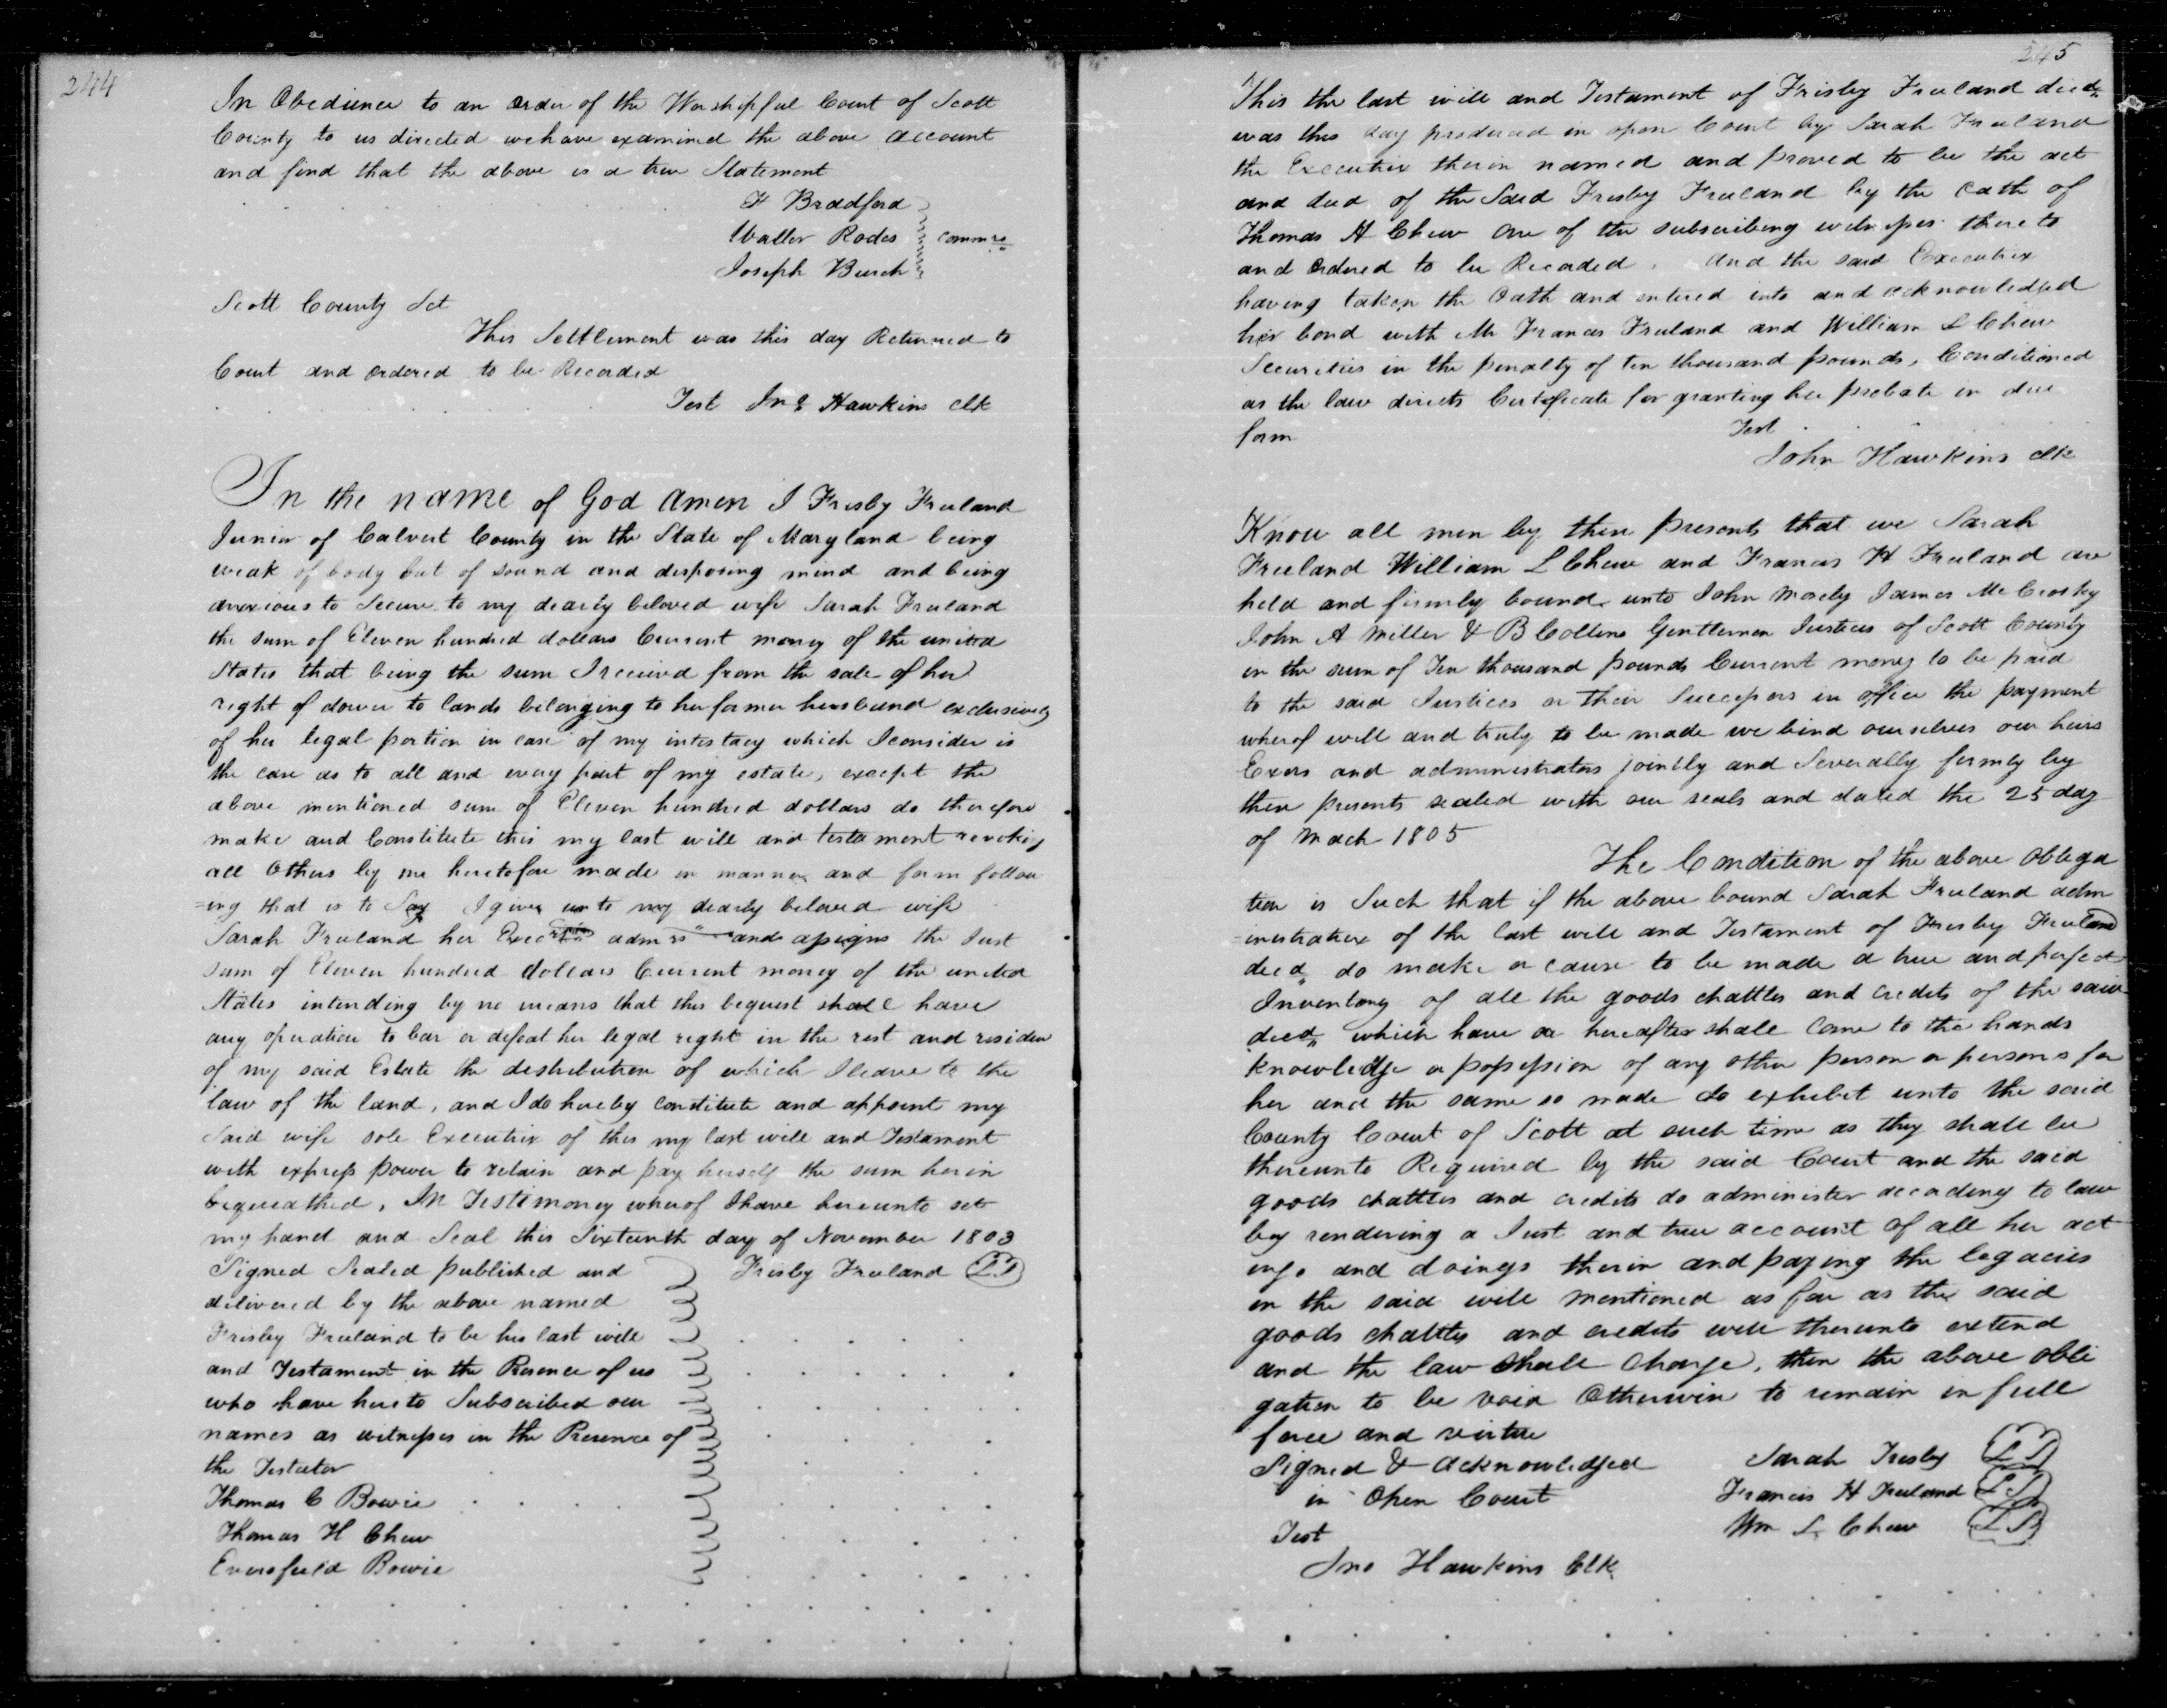 244
In Obedience to an order of the Worshipful Court of Scott
County to us directed we have examined the above account
and find that the above is a true Statement
F Bradford
Waller Rodes
Joseph Burch
commrs
Scott County Sct
This Settlement was this day Returned to
Court and ordered to be Recorded
Test Jno Hawkins clk
In the name of God amen I Frisby Freeland
Junior of Calvert County in the State of Maryland being
weak of body but of sound and disposing mind and being
anxious to Secure to my dearly beloved wife Sarah Freeland
the sum of Eleven hundred dollars Current money of the united
States that being the sum I received from the sale of her
right of dower to lands belonging to her former husband exclusively
of her legal portion in case of my intestacy which I consider is
the case as to all and every part of my estate, except the
above mentioned sum of Eleven hundred dollars do therefore
make and Constitute this my last will and testament revoking
all Others by me heretofore made in manner and form follow
=ing that is to Say I give unto my dearly beloved wife
Sarah Freeland her admrs and assigns the Just
sum of Eleven hundred dollars Current money of the united
States intending by no means that this bequest shall have
any operation to bar or defeat her legal right in the rest and residue
of my said Estate the destribution of which I leave to the
law of the land, and I do hereby constitute and appoint my
Said wife sole Executrix of this my last will and Testament
with express power to retain and pay herself the sum herin
bequeathed, In Testimoney wherof I have hereunto set
my hand and Seal this Sixteenth day of November 1803
Signed Sealed published and
delivered by the above named
Frisby Freeland to be his last will
and Testament in the Presence of us
who have hereto Subscribed our
names as witnesses in the Presence of
the Testator
Thomas C Bowie
Thomas H Chew
Eversfield Bowie
Frisby Freeland LS
245
This the last will and Testament of Frisby Freeland decd
was this day produced in open Court by Sarah Freeland
the Executrix therin named and proved to be the act
and deed of the Said Frisby Freeland by the oath of
Thomas H Chew one of the subscribing witnesses thereto
and ordered to be Recorded. And the said Executrix
having taken the Oath and entered into and acknowledged
her bond with Mr Francis Freeland and William L Chew
Securities in the penalty of ten thousand pounds, Conditioned
as the law directs Certificate for granting her probate in due
form
Test
John Hawkins clk
Know all men by these presents that we Sarah
Freeland William L Chew and Francis H Freeland are
held and firmly bound unto John Mosely James McCrosky
John A Miller & B Collins Gentlemen Justices of Scott County
in the sum of Ten thousand pounds Current money to be paid
to the said Justices or their Successors in office the payment
wherof well and truly to be made we bind ourselves our heirs
Exors and administrators jointly and Severally firmly by
these presents sealed with our seals and dated the 25 day
of March 1805
The Condition of the above Obliga
tion is Such that if the above bound Sarah Freeland adm
=inistratrix of the last will and Testament of Frisby Freeland
decd do make or cause to be made a true and perfect
Inventory of all the goods chattles and credits of the said
decd which have or hereafter shall come to the hands
knowledge or possession of any other person or persons for
her and the same so made do exhibit unto the said
County Court of Scott at such time as they shall be
thereunto Required by the said Court and the said
goods chattles and credits do administer according to law
by rendering a Just and true account of all her act
ings and doings therin and paying the legacies
in the said will mentioned as far as the said
goods chattles and credits will thereunto extend
and the law shall charge, then the above obli
gation to be void Otherwise to remain in full
force and virtue
Signed & acknowledged
in Open Court
Test
Jno Hawkins Clk
Sarah Frisby LS
Francis H Freeland LS
Wm L Chew LS